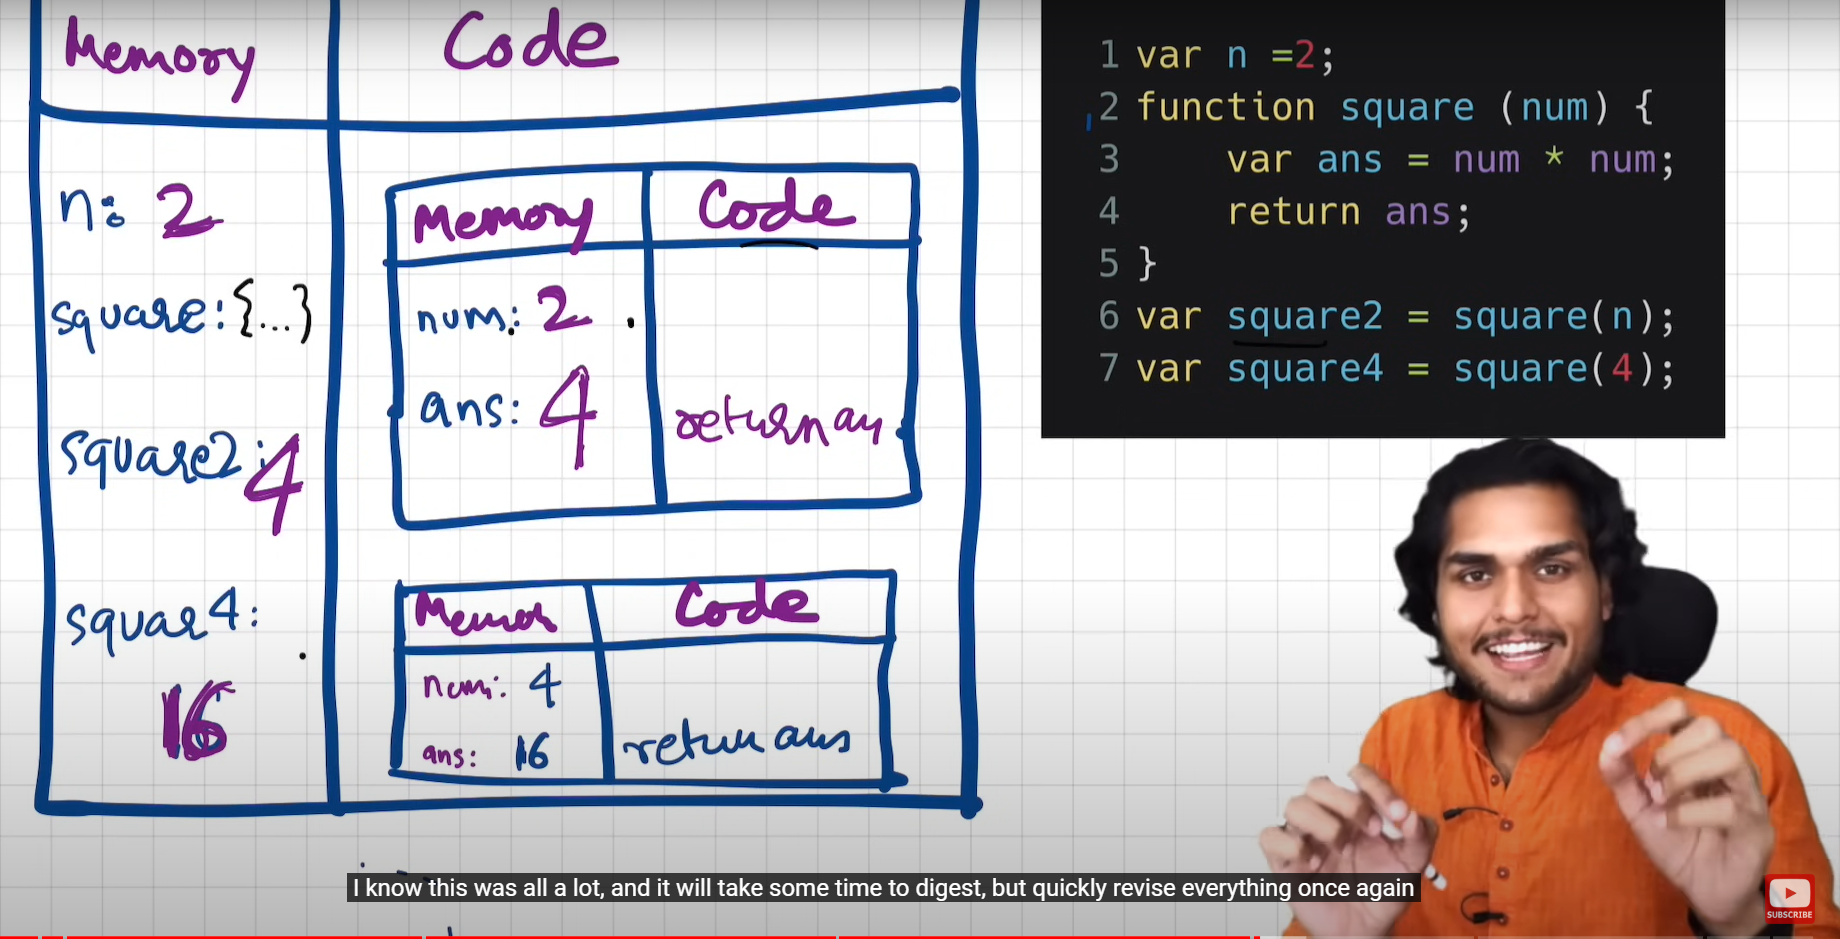 Memory Code
n: 2
square: {...}
square2: 4
squar4:
16
Memory Code
num: 2
ans: 4
return an
Memor Code
num: 4
ans: 16
return ans
1 var n =2;
2 function square (num) {
3 var ans = num * num;
4 return ans;
5 }
6 var square2 = square(n);
7 var square4 = square(4);
I know this was all a lot, and it will take some time to digest, but quickly revise everything once again
SUBSCRIBE